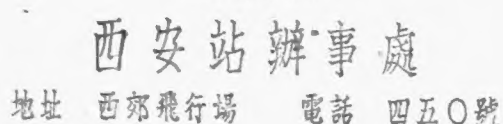 西安站辦事處
地址 西郊飛行場 電話 四五〇號